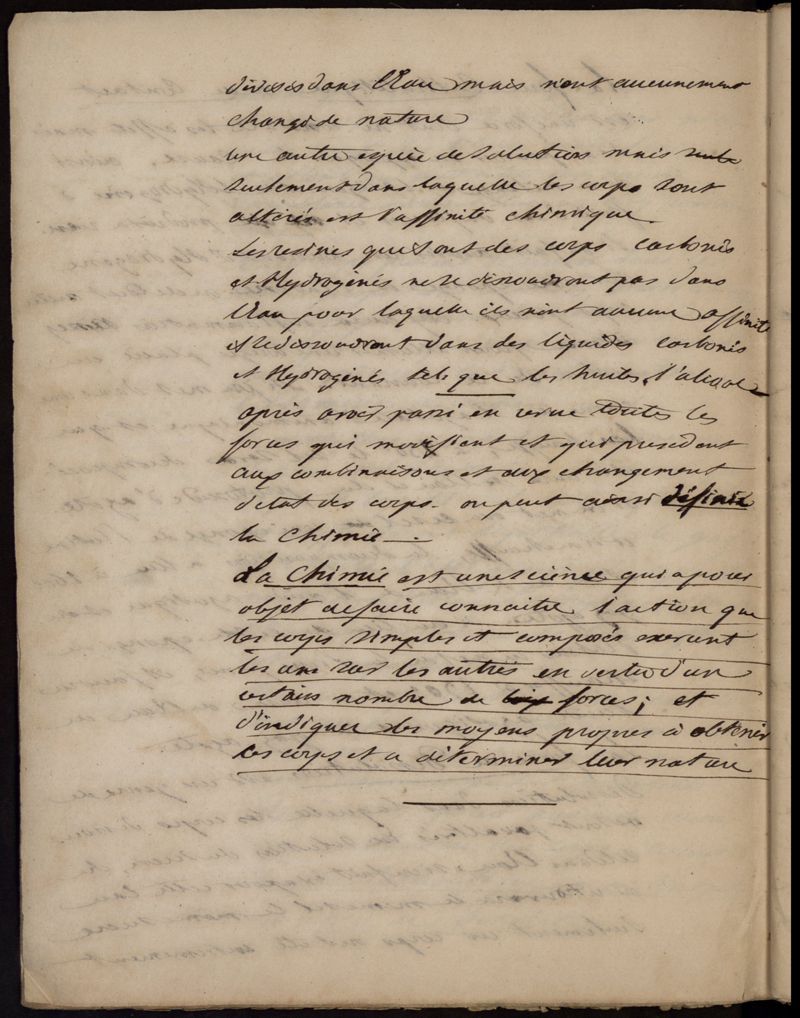 divisés dans l'Eau mais n'ont aucunement
changé de nature
une autre espèce de solutions mais seule
seulement dans laquelle les corps sont
altérés est l'affinité chimique.
Les resines qui sont des corps carbonés
et Hydrogénés ne se dissoudront pas dans
l'Eau pour laquelle ils n'ont aucune affinité
et se dissoudront dans des liquides carbonés
et Hydrogénés tels que les huiles, l'alcool
après avoir passé en revue toutes les
forces qui modifient et qui president
aux combinaisons et aux changement
d'etat des corps. on peut ainsi définir
la Chimie —.
La Chimie est une science qui a pour
objet de faire connaitre l'action que
les corps simples et composés exercent
les uns sur les autres en vertu d'un
certains nombre de forces; et
d'indiquer des moyens propres à obtenir
ces corps et a déterminer leur nature